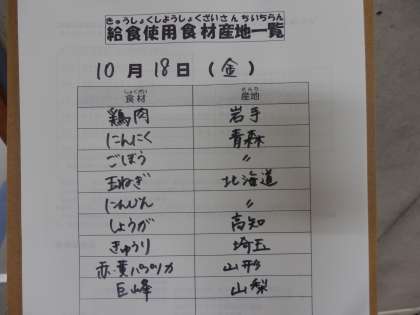 きゅうしょくしようしょくざいさんちいちらん
給食使用食材産地一覧
10月18日(金)
しょくざい さんち
食材 産地
鶏肉 岩手
にんにく 青森
ごぼう 〃
玉ねぎ 北海道
にんじん 〃
しょうが 高知
きゅうり 埼玉
赤・黄パプリカ 山形
巨峰 山梨